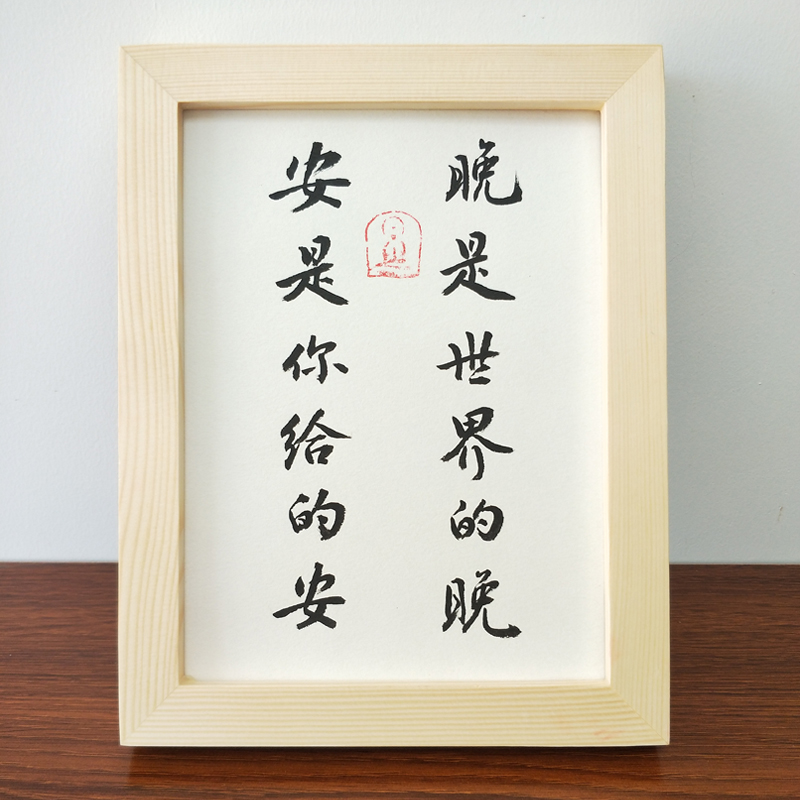 晚是世界的晚
安是你给的安